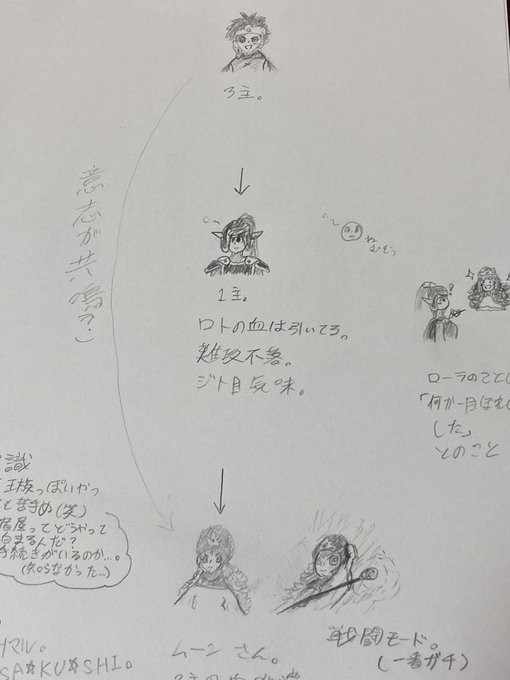 3主。
意志が共鳴?
むぞう
1主。
ロトの血は引いてる。
難攻不落。
ジト目気味。
ローラのことし
「何か一目ぼれ
した」
とのこと
識
王族っぽいやつ
と苦手め(笑)
宿屋ってどうやって
泊まるんだ?
手続きがいるのか…。
(知らなかった…)
ムーンさん。
戦闘モード。
(一番ガチ)
マル。
SA☆KU☆SHI.